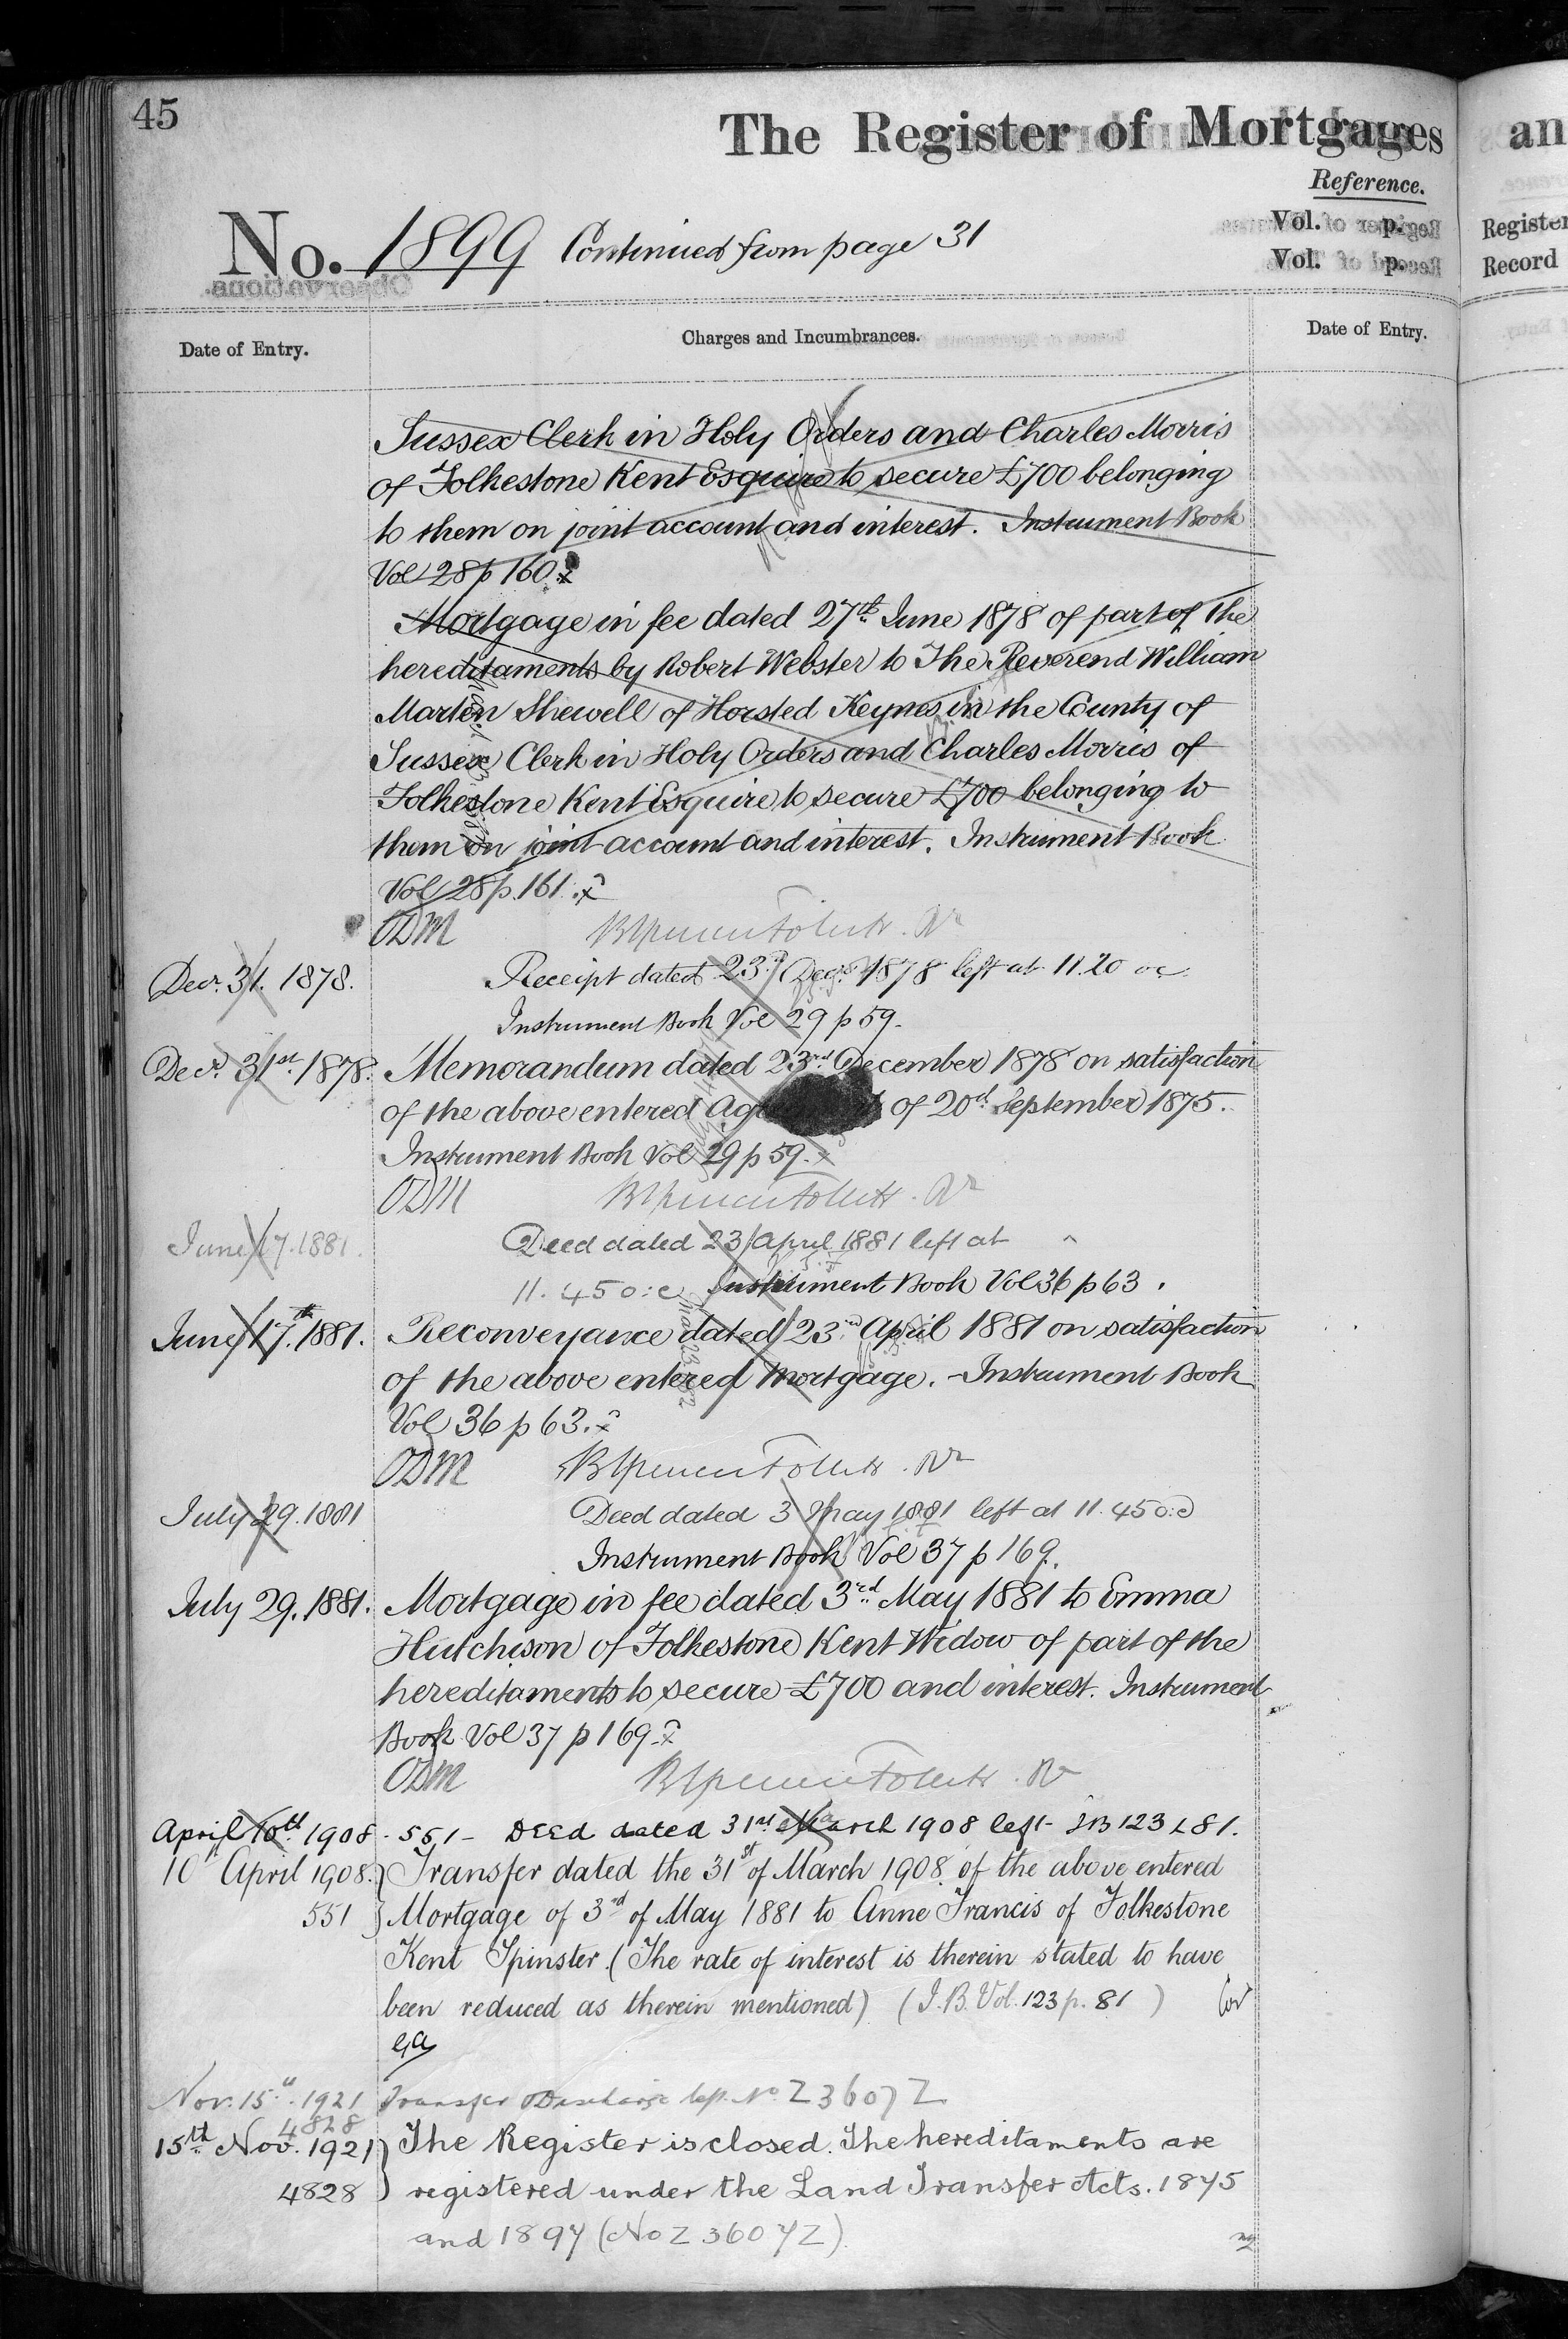 45
The Register of Mortgages
an
Reference.
No. 1899 Continued from page 31
Vol. p.
Register
Vol. p.
Record
Date of Entry.
Charges and Incumbrances.
Date of Entry.
Sussex Clerk in Holy Orders and Charles Morris
of Folkestone Kent Esquire to secure £700 belonging
to them on joint account and interest. Instrument Book
Vol 28 p 160.
Mortgage in fee dated 27th June 1878 of part of the
hereditaments by Robert Webster to The Reverend William
Marten Shewell of Horsted Keynes in the County of
Sussex Clerk in Holy Orders and Charles Morris of
Folkestone Kent Esquire to secure £700 belonging to
them on joint account and interest. Instrument Book
Vol 28 p. 161.
ODM
Decr. 31. 1878. Receipt dated 23rd Decr. 1878 left at 11.20 oc
Instrument Book Vol 29 p 59.
Decr. 31st. 1878. Memorandum dated 23rd December 1878 on satisfaction
of the above entered of 20th September 1875.
Instrument Book Vol 29 p 59.
ODM
June 17. 1881. Deed dated 23 April 1881 left at
11.45 o:c Instrument Book Vol 36 p 63.
June 17th. 1881. Reconveyance dated 23rd April 1881 on satisfaction
of the above entered Mortgage. Instrument Book
Vol 36 p 63.
ODM
July 29. 1881 Deed dated 3 May 1881 left at 11.45 o:c
Instrument Book Vol 37 p 169.
July 29. 1881. Mortgage in fee dated 3rd May 1881 to Emma
Hutchison of Folkestone Kent Widow of part of the
hereditaments to secure £700 and interest. Instrument
Book Vol 37 p 169.
ODM
April 10th. 1908 - 551 - Deed dated 31st March 1908 left - IB 123 & 81.
10th April 1908. Transfer dated the 31st of March 1908 of the above entered
551 Mortgage of 3rd of May 1881 to Anne Francis of Folkestone
Kent Spinster. (The rate of interest is therein stated to have
been reduced as therein mentioned) (I.B. Vol. 123 p. 81)
Nov. 15th. 1921 Transfer Discharge left. No. Z 3607Z
4828
15th. Nov. 1921 The Register is closed. The hereditaments are
4828 registered under the Land Transfer Acts. 1875
and 1897 (No Z 3607Z).